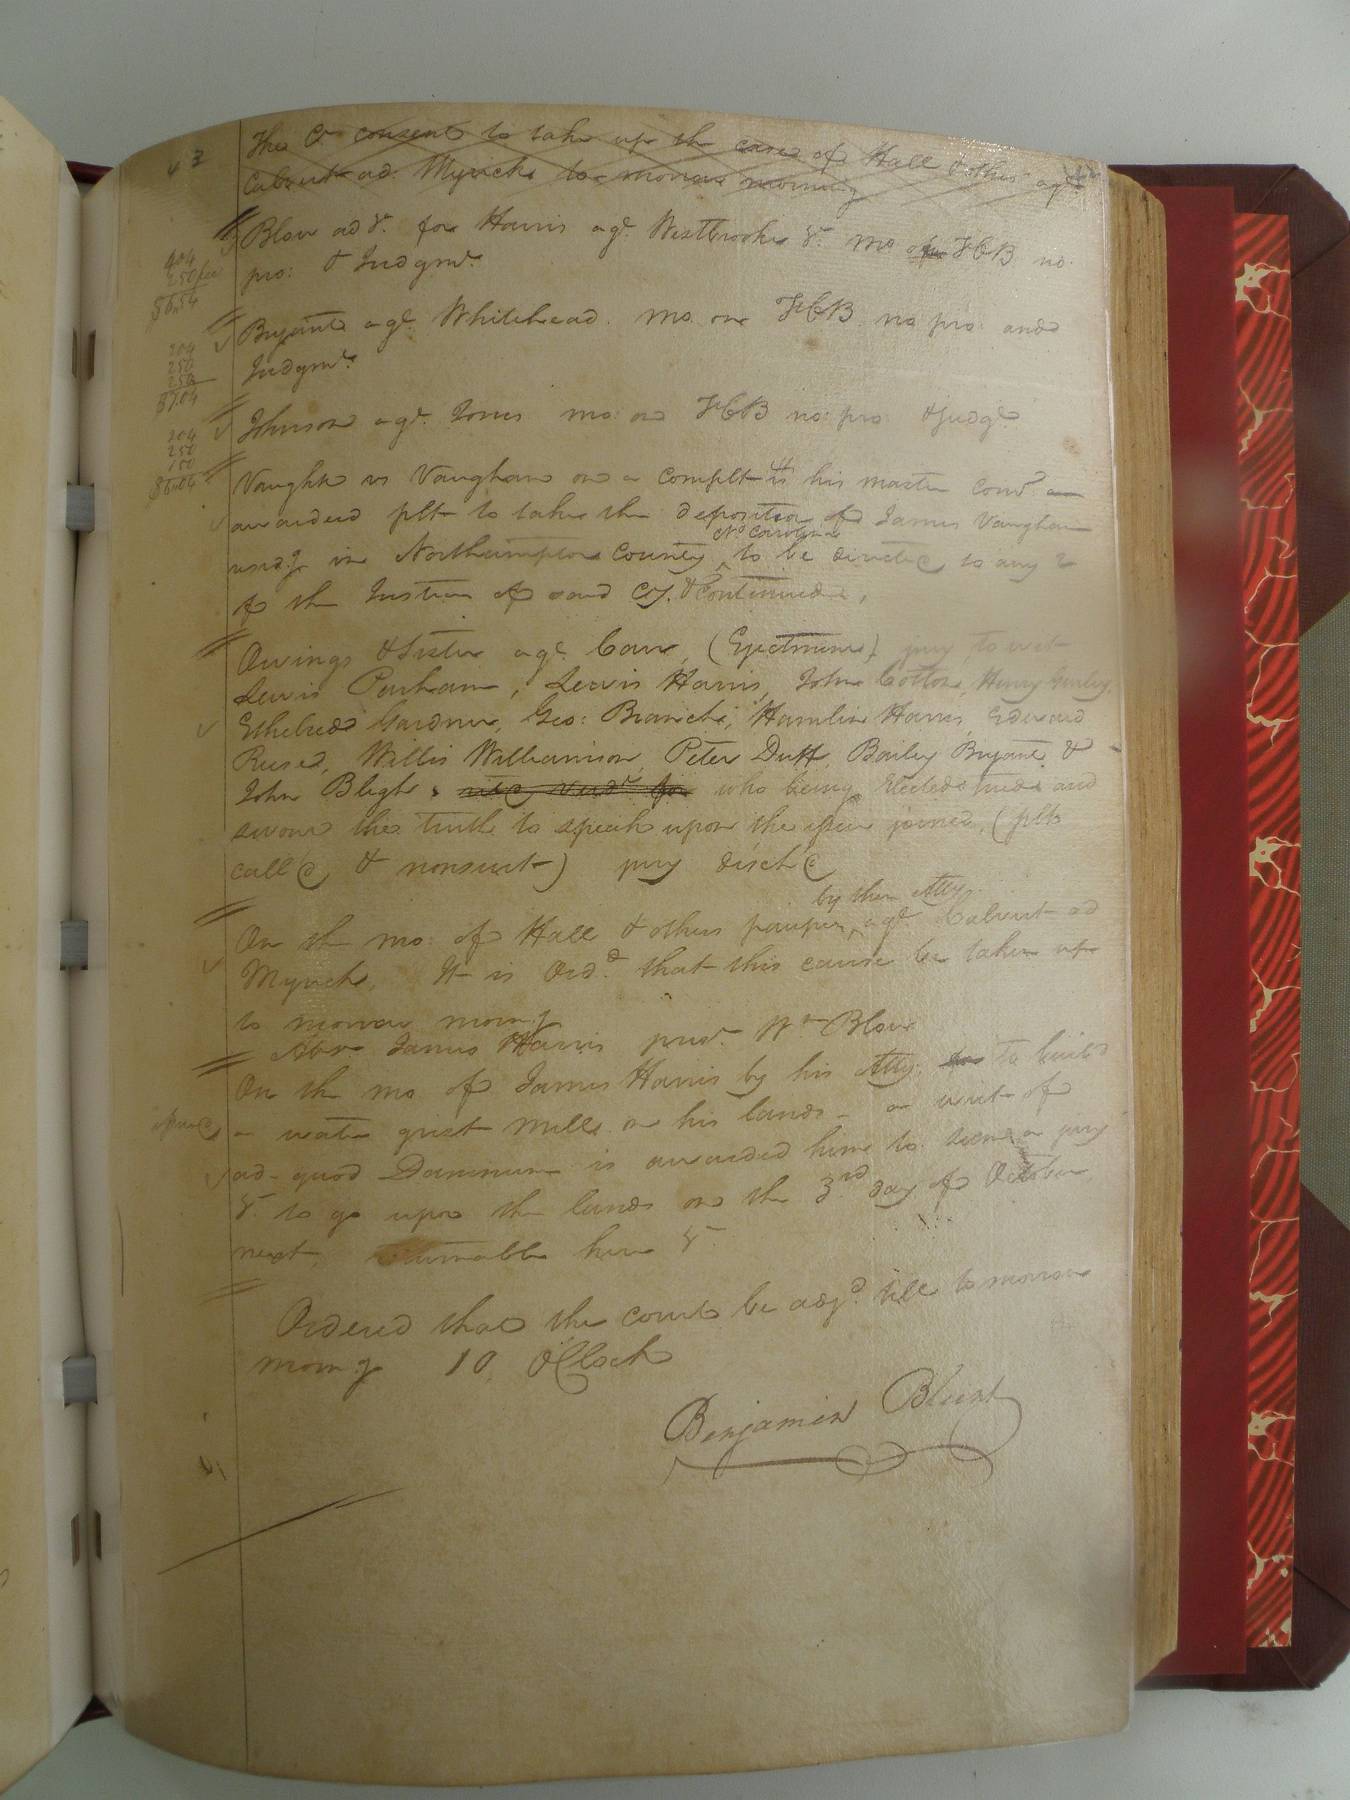 43
The Ct consent to take up the case of Hall & others agt.
Calvert ad. Myrick to-morrow morning
Blow ad &c. for Harris agt. Westbrooke &c. mo on FCB no.
pro: & Judgmt.
404
250
$6.54
Bryant agt. Whitehead. mo. on FCB no pro. and
Judgmt.
204
250
250
$7.04
Johnson agt. Jones mo: on FCB no: pro: & Judgt
204
250
150
$6.04
Vaughan vs Vaughan on a Complt his master
awarded plt to take the deposition of James Vaughan
resdg in Northampton County No Carolina to be directed to any 2
of the Justices of said Cty. & Continued.
Owings & Sister agt. Carr, (Ejectment) jury to wit
Lewis Parham, Lewis Harris, John Cotton, Henry Gurley,
Ethelred Gardner, Geo: Branch, Hamlin Harris, Edward
Reese, Willis Williamson, Peter Duff, Bailey Bryant, &
John Bligh, who being Elected tried and
sworn the truth to speak upon the issue joined, (plts
calld & nonsuit) jury dischd
On the mo: of Hall & others paupers, by their Atty. agt. Calvert ad
Myrick, It is Ordd. that this cause be taken up
to morrow morng
Abv. James Harris Wm Blow
On the mo of James Harris by his Atty. to build
a water grist Mill on his lands - a writ of
ad-quod Damnum is awarded him to a jury
&c. to go upon the lands on the 3rd day of October
next, returnable here &c
issued
Ordered that the court be adjd. till to morrow
morng 10, OClock
Benjamin Blunt